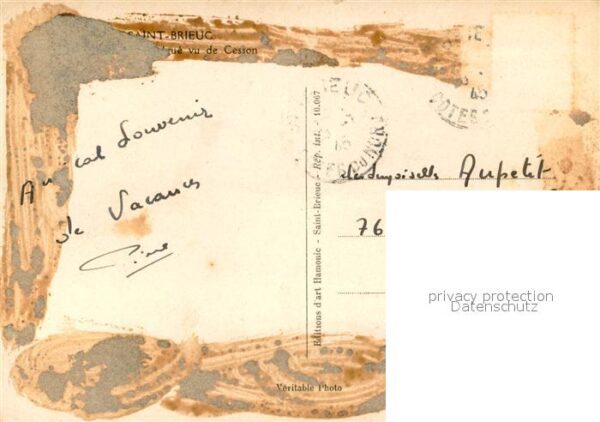 SAINT-BRIEUC
vu de Cesson
Amical Souvenir
de Vacances
Editions d'art Hamonic - Saint-Brieuc - Rép. int. - 10.067
Véritable Photo
Aupetit
76
privacy protection
Datenschutz